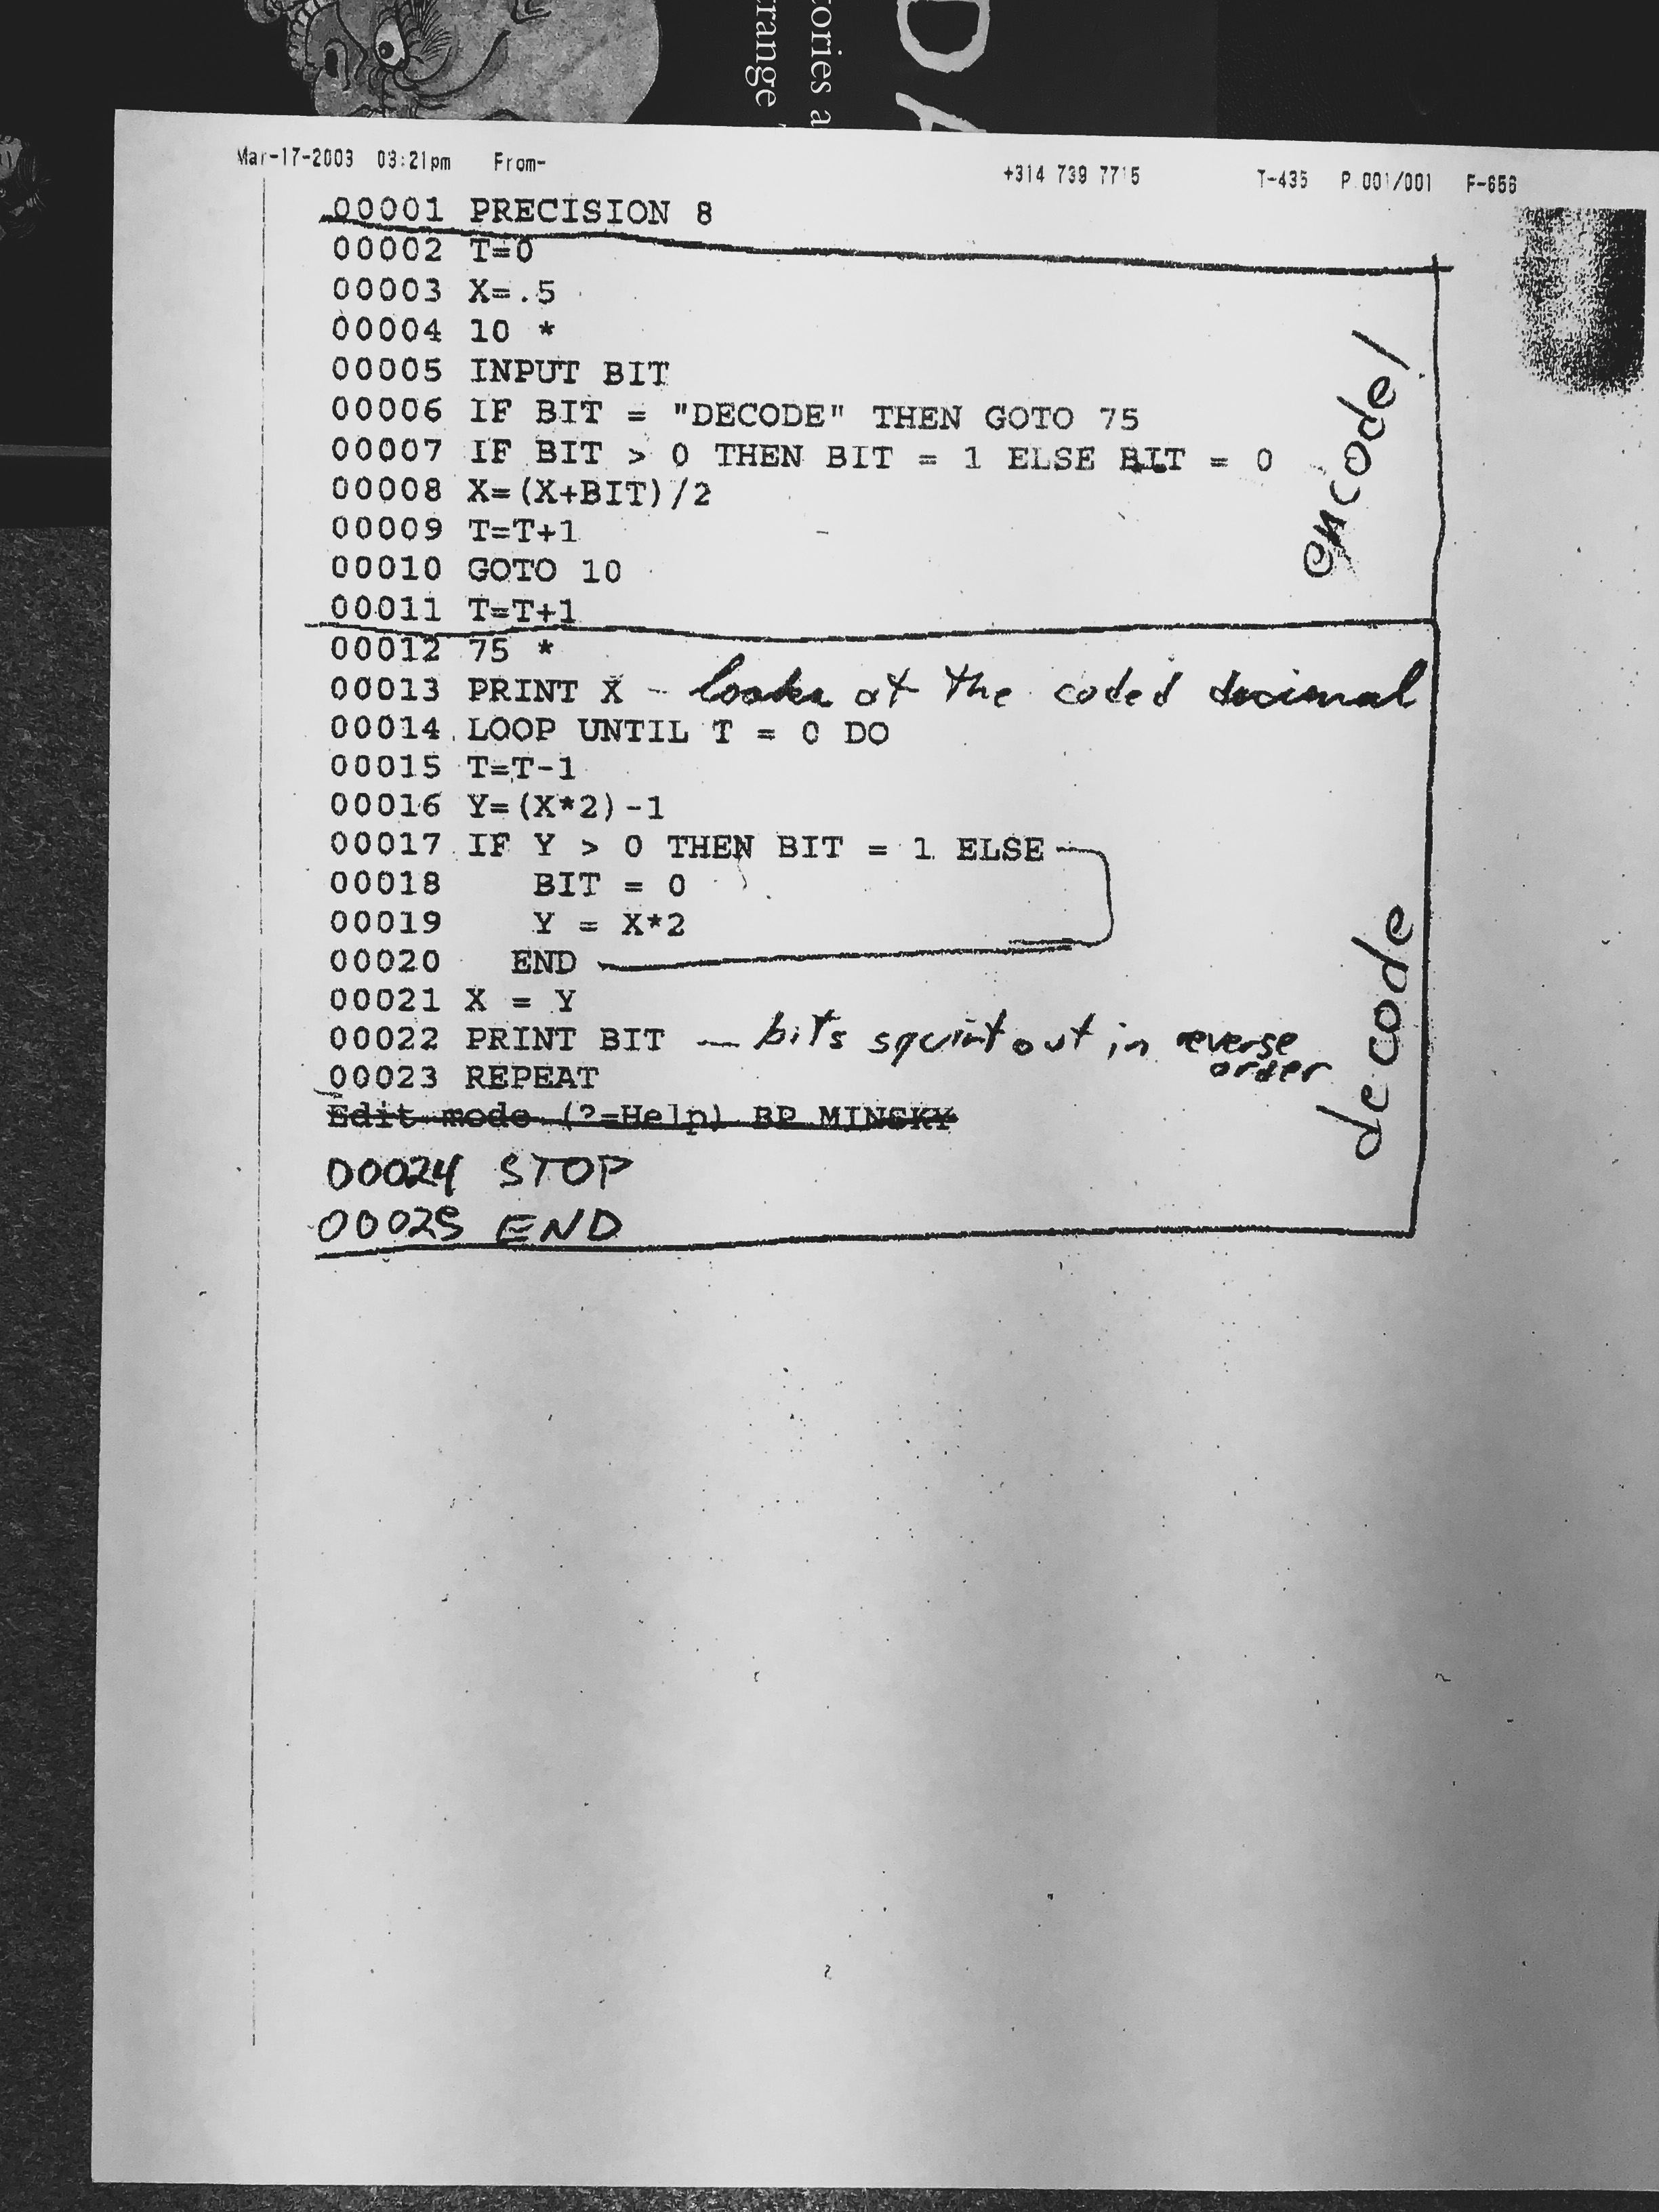 tories a
trange
DA
Mar-17-2003 03:21pm From- +314 739 7715 T-435 P.001/001 F-656
00001 PRECISION 8
00002 T=0
00003 X=.5
00004 10 *
00005 INPUT BIT
00006 IF BIT = "DECODE" THEN GOTO 75
00007 IF BIT > 0 THEN BIT = 1 ELSE BIT = 0
00008 X=(X+BIT)/2
00009 T=T+1
00010 GOTO 10
00011 T=T+1
encode!
00012 75 *
00013 PRINT X - looks at the coded decimal
00014 LOOP UNTIL T = 0 DO
00015 T=T-1
00016 Y=(X*2)-1
00017 IF Y > 0 THEN BIT = 1 ELSE
00018 BIT = 0
00019 Y = X*2
00020 END
00021 X = Y
00022 PRINT BIT — bits squirt out in reverse order
00023 REPEAT
Edit mode (?=Help) BP MINSKY
00024 STOP
00025 END
decode